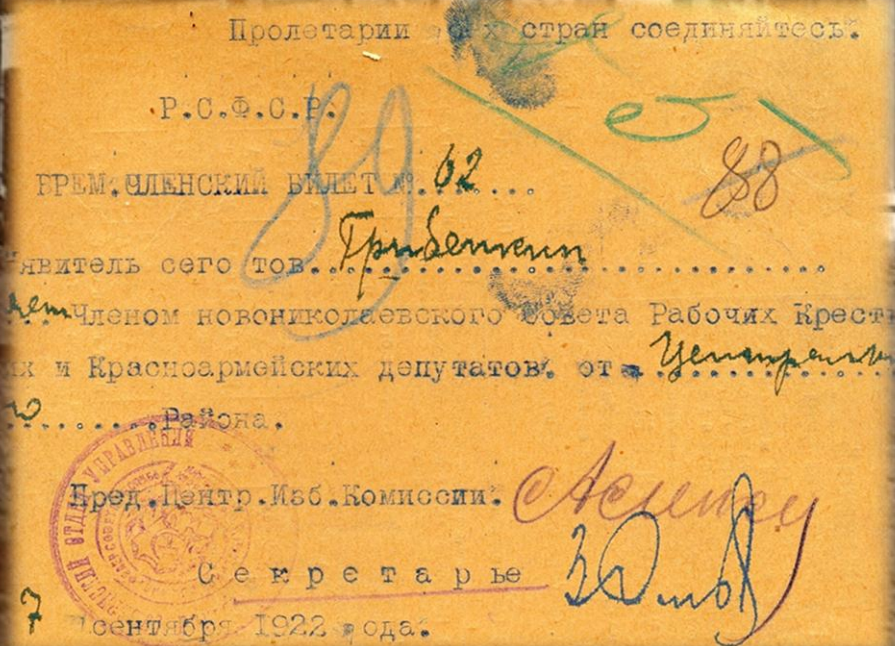 Пролетарии стран соединяйтесь.
Р.С.Ф.С.Р.
89
88
ВРЕМ.ЧЛЕНСКИЙ БИЛЕТ №.62......
явитель сего тов. Грибенкин
Членом новониколаевского Совета Рабочих Крест
их и Красноармейских депутатов. от Центральн
го .........Района.
Пред.Центр.Изб.Комиссии.
Секретарье
7 сентября 1922 года.
УПРАВЛЕНИЯ